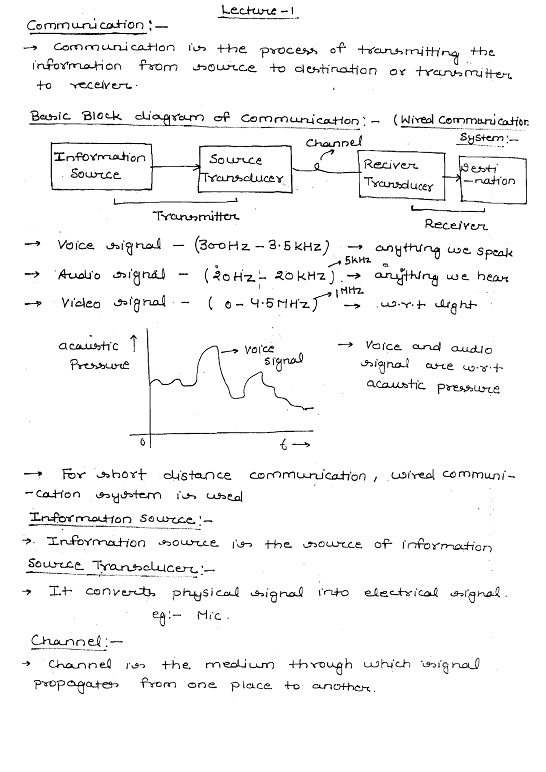 Lecture - 1
Communication :-
→ Communication is the process of transmitting the
information from source to destination or transmitter
to receiver.
Basic Block diagram of Communication :- (Wired Communication
System :-
Channel
Information
Source
Source
Transducer
Reciver
Transducer
Desti
-nation
Transmitter
Receiver
→ Voice signal - (300Hz - 3.5kHz) → anything we speak
→ 5kHz
→ Audio signal - (20Hz - 20kHz) → anything we hear
→ 1MHz
→ Video signal - (0 - 4.5MHz) → w.r.t light
acaustic ↑
Pressure
→ voice
signal
0
t →
→ Voice and audio
signal are w.r.t
acaustic pressure
→ For short distance communication, wired communi-
-cation system is used
Information Source :-
→. Information source is the source of information
Source Transducer :-
→ It converts physical signal into electrical signal.
eg :- Mic.
Channel :-
→ Channel is the medium through which signal
propagates from one place to another.